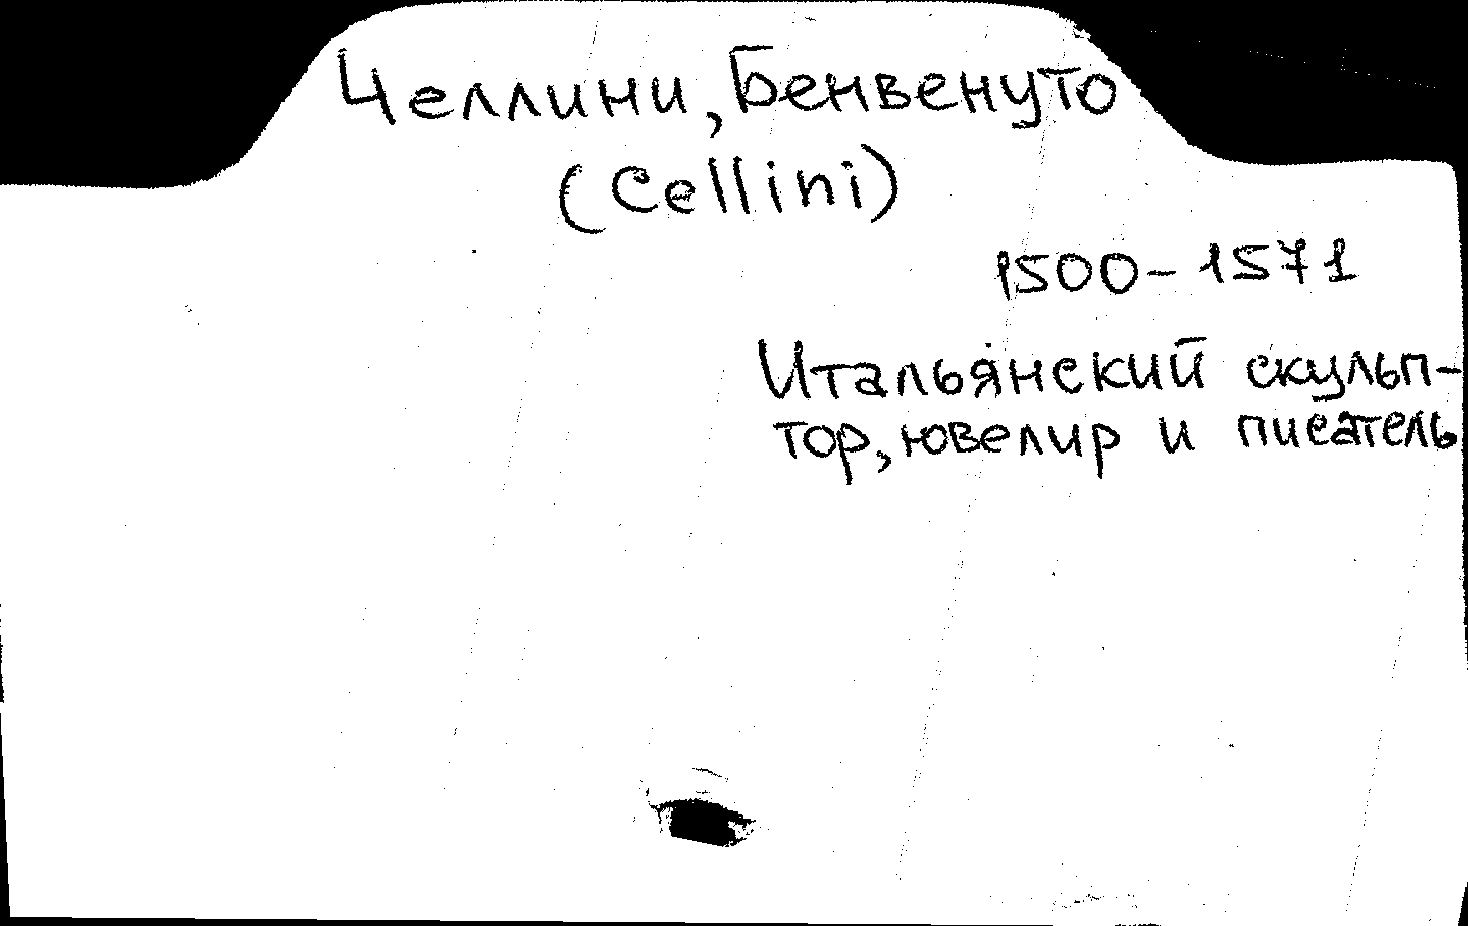 Челлини, Бенвенуто
(Cellini)
1500-1571
Итальянский скульп-
тор, ювелир и писатель